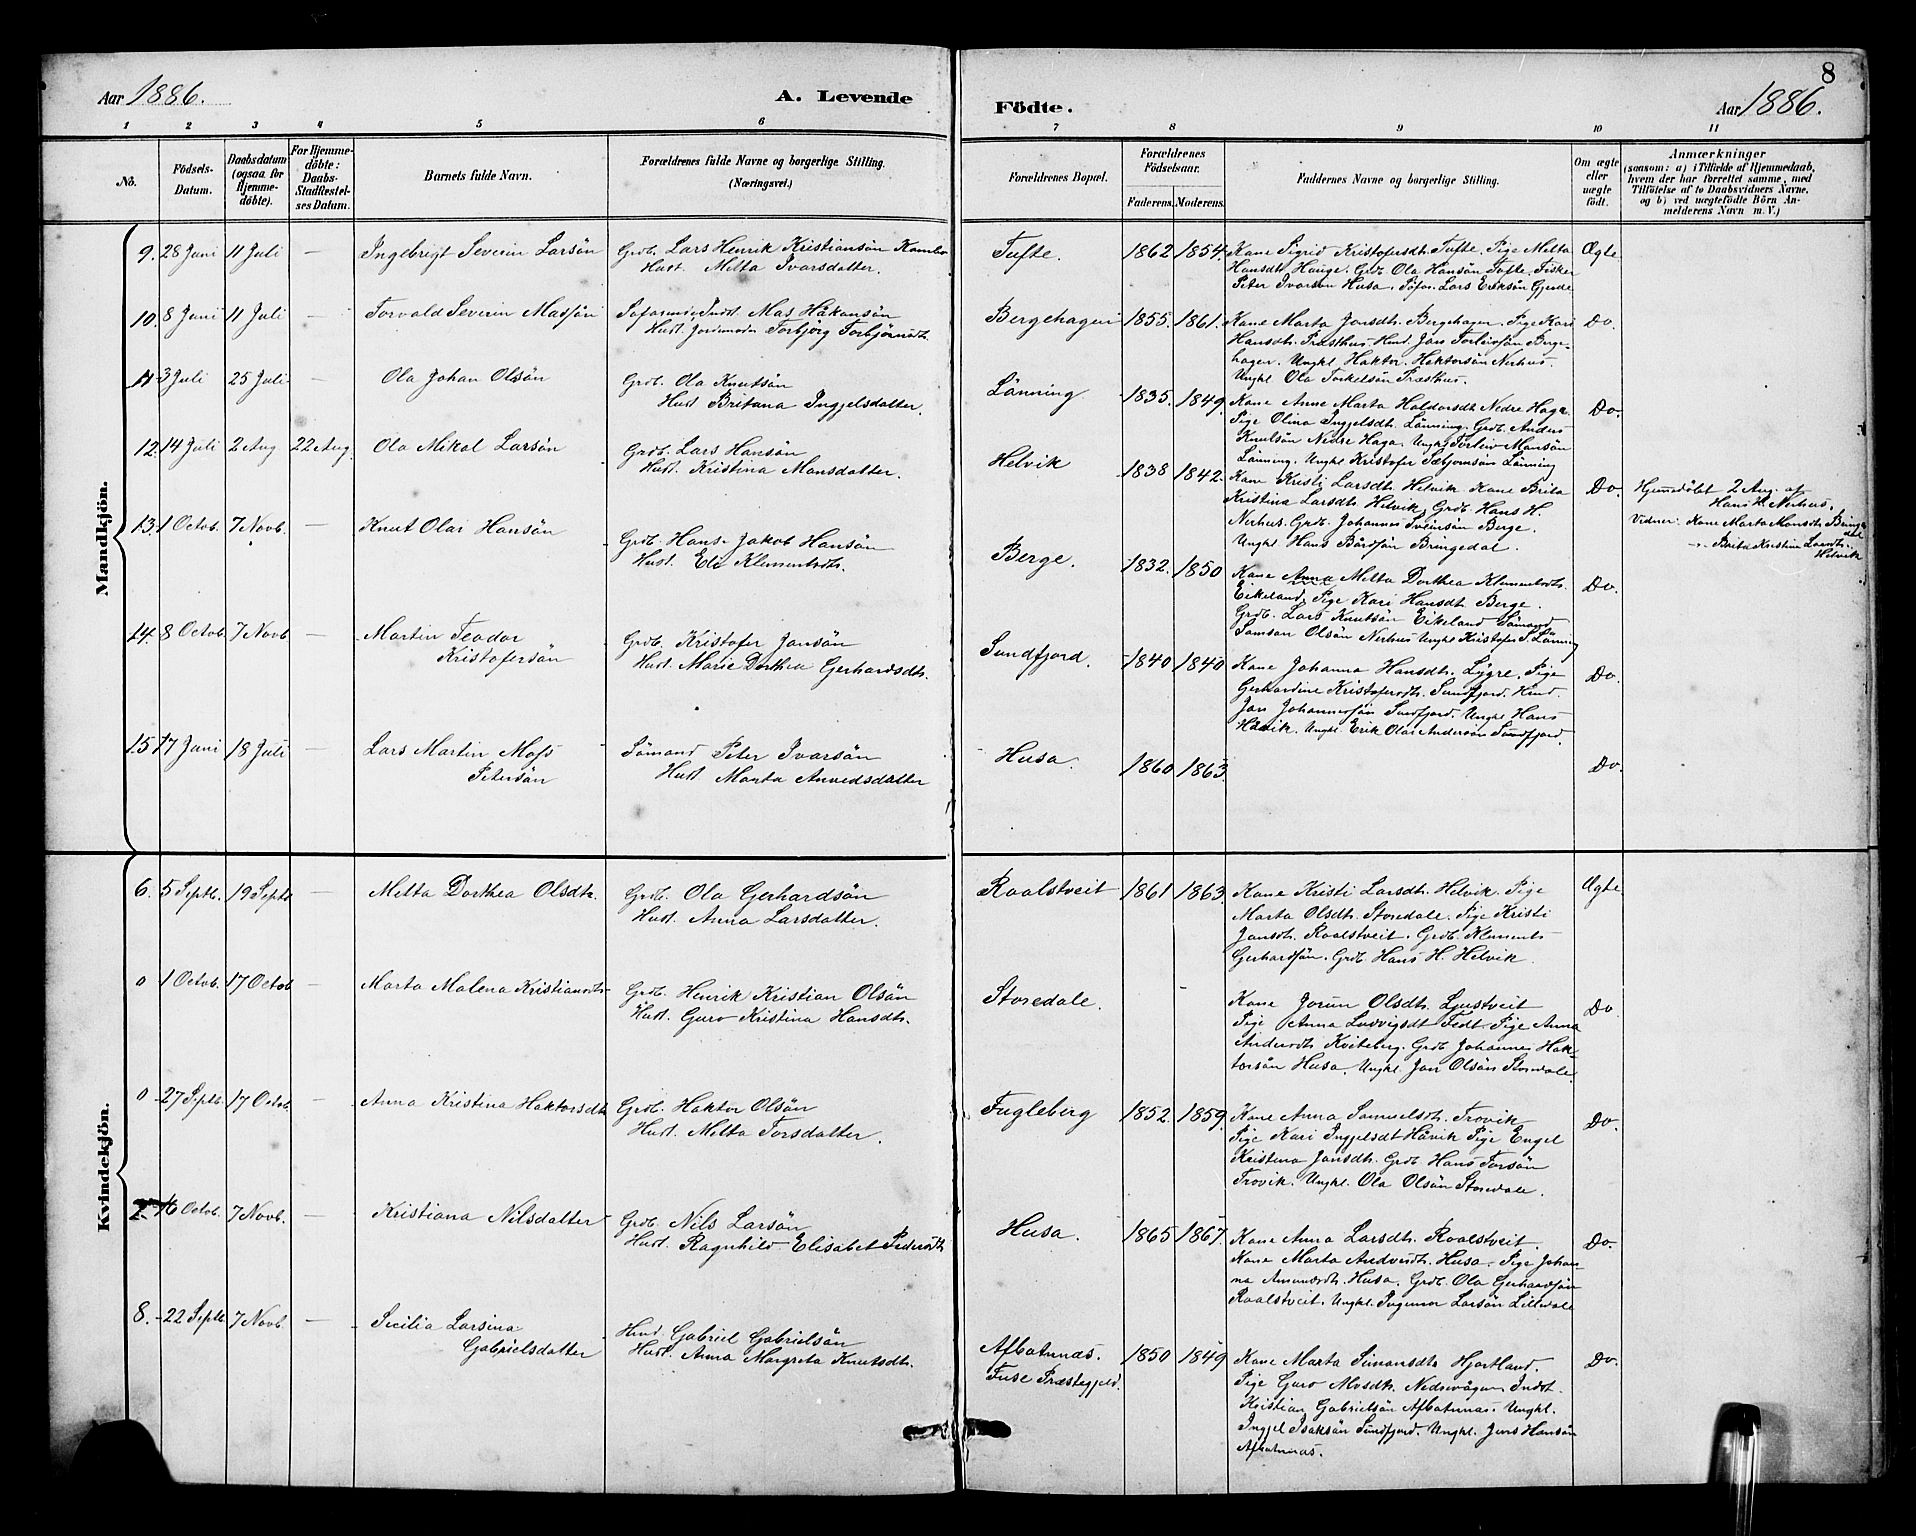 Aar 1886.
A. Levende
Födte.
Aar 1886.
8
1 2 3 4 5 6 7 8 9 10 11
No.
Födsels-
Datum.
Daabsdatum
(ogsaa for
Hjemme-
döbte).
For Hjemme-
döbte:
Daabs-
Stadfæstel-
ses Datum.
Barnets fulde Navn.
Forældrenes fulde Navne og borgerlige Stilling.
(Næringsvei.)
Forældrenes Bopæl.
Forældrenes
Födselsaar.
Faderens. Moderens.
Faddernes Navne og borgerlige Stilling.
Om ægte
eller
uægte
födt.
Anmærkninger
(saasom: a) i Tilfælde af Hjemmedaab,
hvem der har forrettet samme, med
Tilföielse af to Daabsvidners Navne,
og b) ved uægtefödte Börn An-
melderens Navn m. V.)
Mandkjön.
9. 28 Juni 11 Juli — Ingebrigt Severin Larsön
Grdb. Lars Henrik Kristiansön
Hust. Melta Ivarsdatter.
Tufte. 1862 1854.
Kone Sigrid Kristofersdt. Tufte. Pige Melta
Hansdt. Hauge. Grdb. Ola Hansön Tufte. Fisker
Peter Ivarsön Husa. Söfor. Lars Eriksön Gjerde
Ægte
10. 8 Juni 11 Juli — Torvald Severin Massön
Mas Håkonsön
Hust. Jordemoder Torbjörg Torbjörnsdt.
Bergehagen 1855. 1861.
Kone Marta Jonsdt. Bergehagen. Pige Kari
Hansdt. Præsthus. Hmd. Jon Torleivsön Berge-
hagen. Ungkl. Haktor Haktorsön Nerhus.
Ungkl. Ola Torkelsön Præsthus.
Do.
11. 3 Juli 25 Juli — Ola Johan Olsön
Grdb. Ola Knutsön
Hust. Britana Ingjelsdatter.
Lönning 1835. 1849.
Kone Anne Marta Haldorsdt. Nedre Haga.
Pige Olina Ingjelsdt. Lönning. Grdb. Anders
Knutsön Nedre Haga. Ungkl. Torleiv Monsön
Lönning. Ungkl. Kristofer Sæbjörnsön Lönning
Do.
12. 14 Juli 2 Aug 22 Aug. Ola Mikal Larsön
Grdb. Lars Hansön
Hust. Kristina Monsdatter.
Helvik 1838 1842.
Kone Kristi Larsdt. Helvik. Kone Brita
Kristina Larsdt. Helvik. Grdb. Hans H.
Nerhus. Grdb. Johannes Sveinsön Berge.
Ungkl. Hans Bårdsön Bringedal.
Do.
Hjemmedöbt 2 Aug. af
Hans H. Nerhus.
Vidner: Kone Marta Monsdt. Bringe
dal
Brita Kristine Larsdt.
Helvik
13. 1 Octob. 7 Novb. — Knut Olai Hansön
Grdb. Hans Jakob Hansön
Hust. Eli Klementsdt.
Berge. 1832. 1850
Kone Anna Melta Dorthea Klementsdt.
Eikeland. Pige Kari Hansdt. Berge.
Grdb. Lars Knutsön Eikeland. Sömand
Samson Olsön Nerhus. Ungkl. Kristofer S. Lönning
Do.
14. 8 Octob. 7 Novb — Martin Teodor
Kristofersön
Grdb. Kristofer Jonsön
Hust. Marie Dorthea Gerhardsdt.
Sundfjord. 1840 1840
Kone Johanna Hansdt. Lygre. Pige
Gerhardine Kristofersdt. Sundfjord. Hmd.
Jon Johannessön Sundfjord. Ungkl. Hans
Håvik. Ungkl. Erik Olai Andersön Sundfjord.
Do.
15. 17 Juni 18 Juli — Lars Martin Moss
Petersön
Sömand Peter Ivarsön
Hust. Marta Anvedsdatter
Husa. 1860 1863. Do.
Kvindekjön.
6. 5 Septb. 19 Septb — Melta Dorthea Olsdt.
Grdb. Ola Gerhardsön
Hust. Anna Larsdatter.
Roalstveit 1861 1863.
Kone Kristi Larsdt. Helvik. Pige
Marta Olsdt. Storedale. Pige Kristi
Jonsdt. Roalstveit. Grdb. Klement
Gerhardsön. Grdb. Hans H. Helvik.
Ægte
0 1 Octob. 17 Octob — Marta Malena Kristiansdt.
Grdb. Henrik Kristian Olsön
Hust. Guro Kristina Hansdt.
Storedale.
Kone Jorun Olsdt. Ljustveit
Pige Anna Ludvigsdt Tedt. Pige Anna
Andersdt. Kviteberg. Grdb. Johannes Hak-
torsön Husa. Ungkl. Jon Olsön Storedale.
Do.
0 27 Septb. 17 Octob. — Anna Kristina Haktorsdt
Grdb. Haktor Olsön
Hust. Melta Torsdatter.
Fugleberg 1852. 1859.
Kone Anna Samuelsdt. Trovik
Pige Kari Ingjelsdt Håvik Pige Engel
Kristina Jonsdt. Grdb. Hans Torsön
Trovik. Ungkl. Ola Olsön Storedale.
Do.
7. 16 Octob. 7 Novb. — Kristiana Nilsdatter
Grdb. Nils Larsön
Hust. Ragnhild Elisabet Pedersdt.
Husa. 1865 1867.
Kone Anna Larsdt. Roalstveit.
Kone Marta Andvedsdt. Husa. Pige Johan-
na Amundsdt. Husa. Grdb. Ola Gerhardsön
Roalstveit. Ungkl. Ingemor Larsön Lilledale
Do.
8. 22 Septb. 7 Novb. — Secilia Larsina
Gabrielsdatter
Hmd. Gabriel Gabrielsön
Hust. Anna Margreta Knutsdt.
Afbatnnas.
Fuse Præstegjeld. 1850 1849
Kone Marta Simonsdt. Hjortland.
Pige Guro Monsdt. Nedrevågen Indst.
Kristian Gabrielsön Afbatnnas. Ungkl.
Ingjel Isaksön Sundfjord. Ungkl. Jens Hansön
Afbatnnas.
Do.